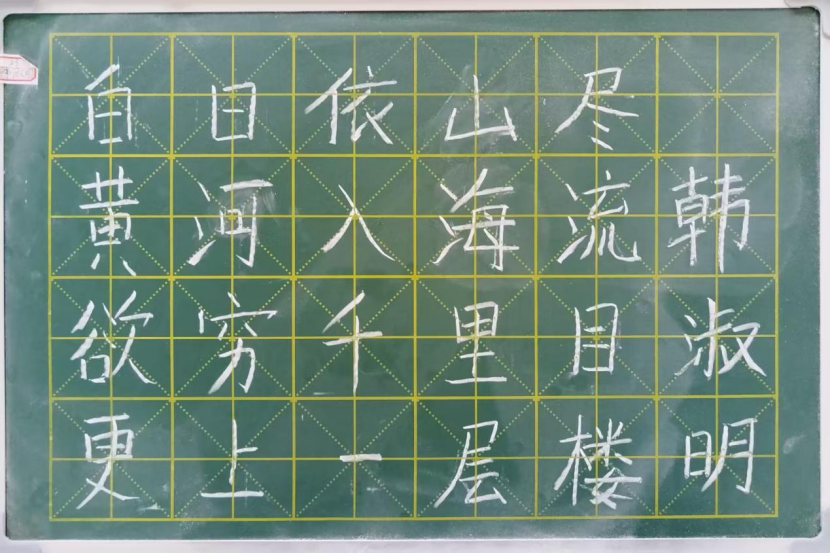 白日依山尽
黄河入海流韩
欲穷千里目淑
更上一层楼明